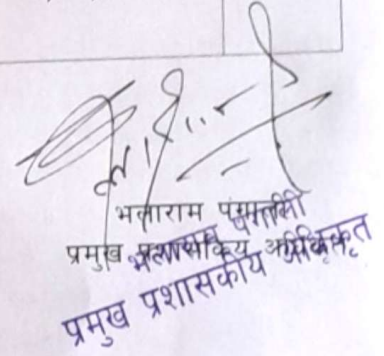 भलाराम पंगाली
प्रमुख प्रशासकिय अधिकृत
भलाराम पंगाली
प्रमुख प्रशासकीय अधिकृत